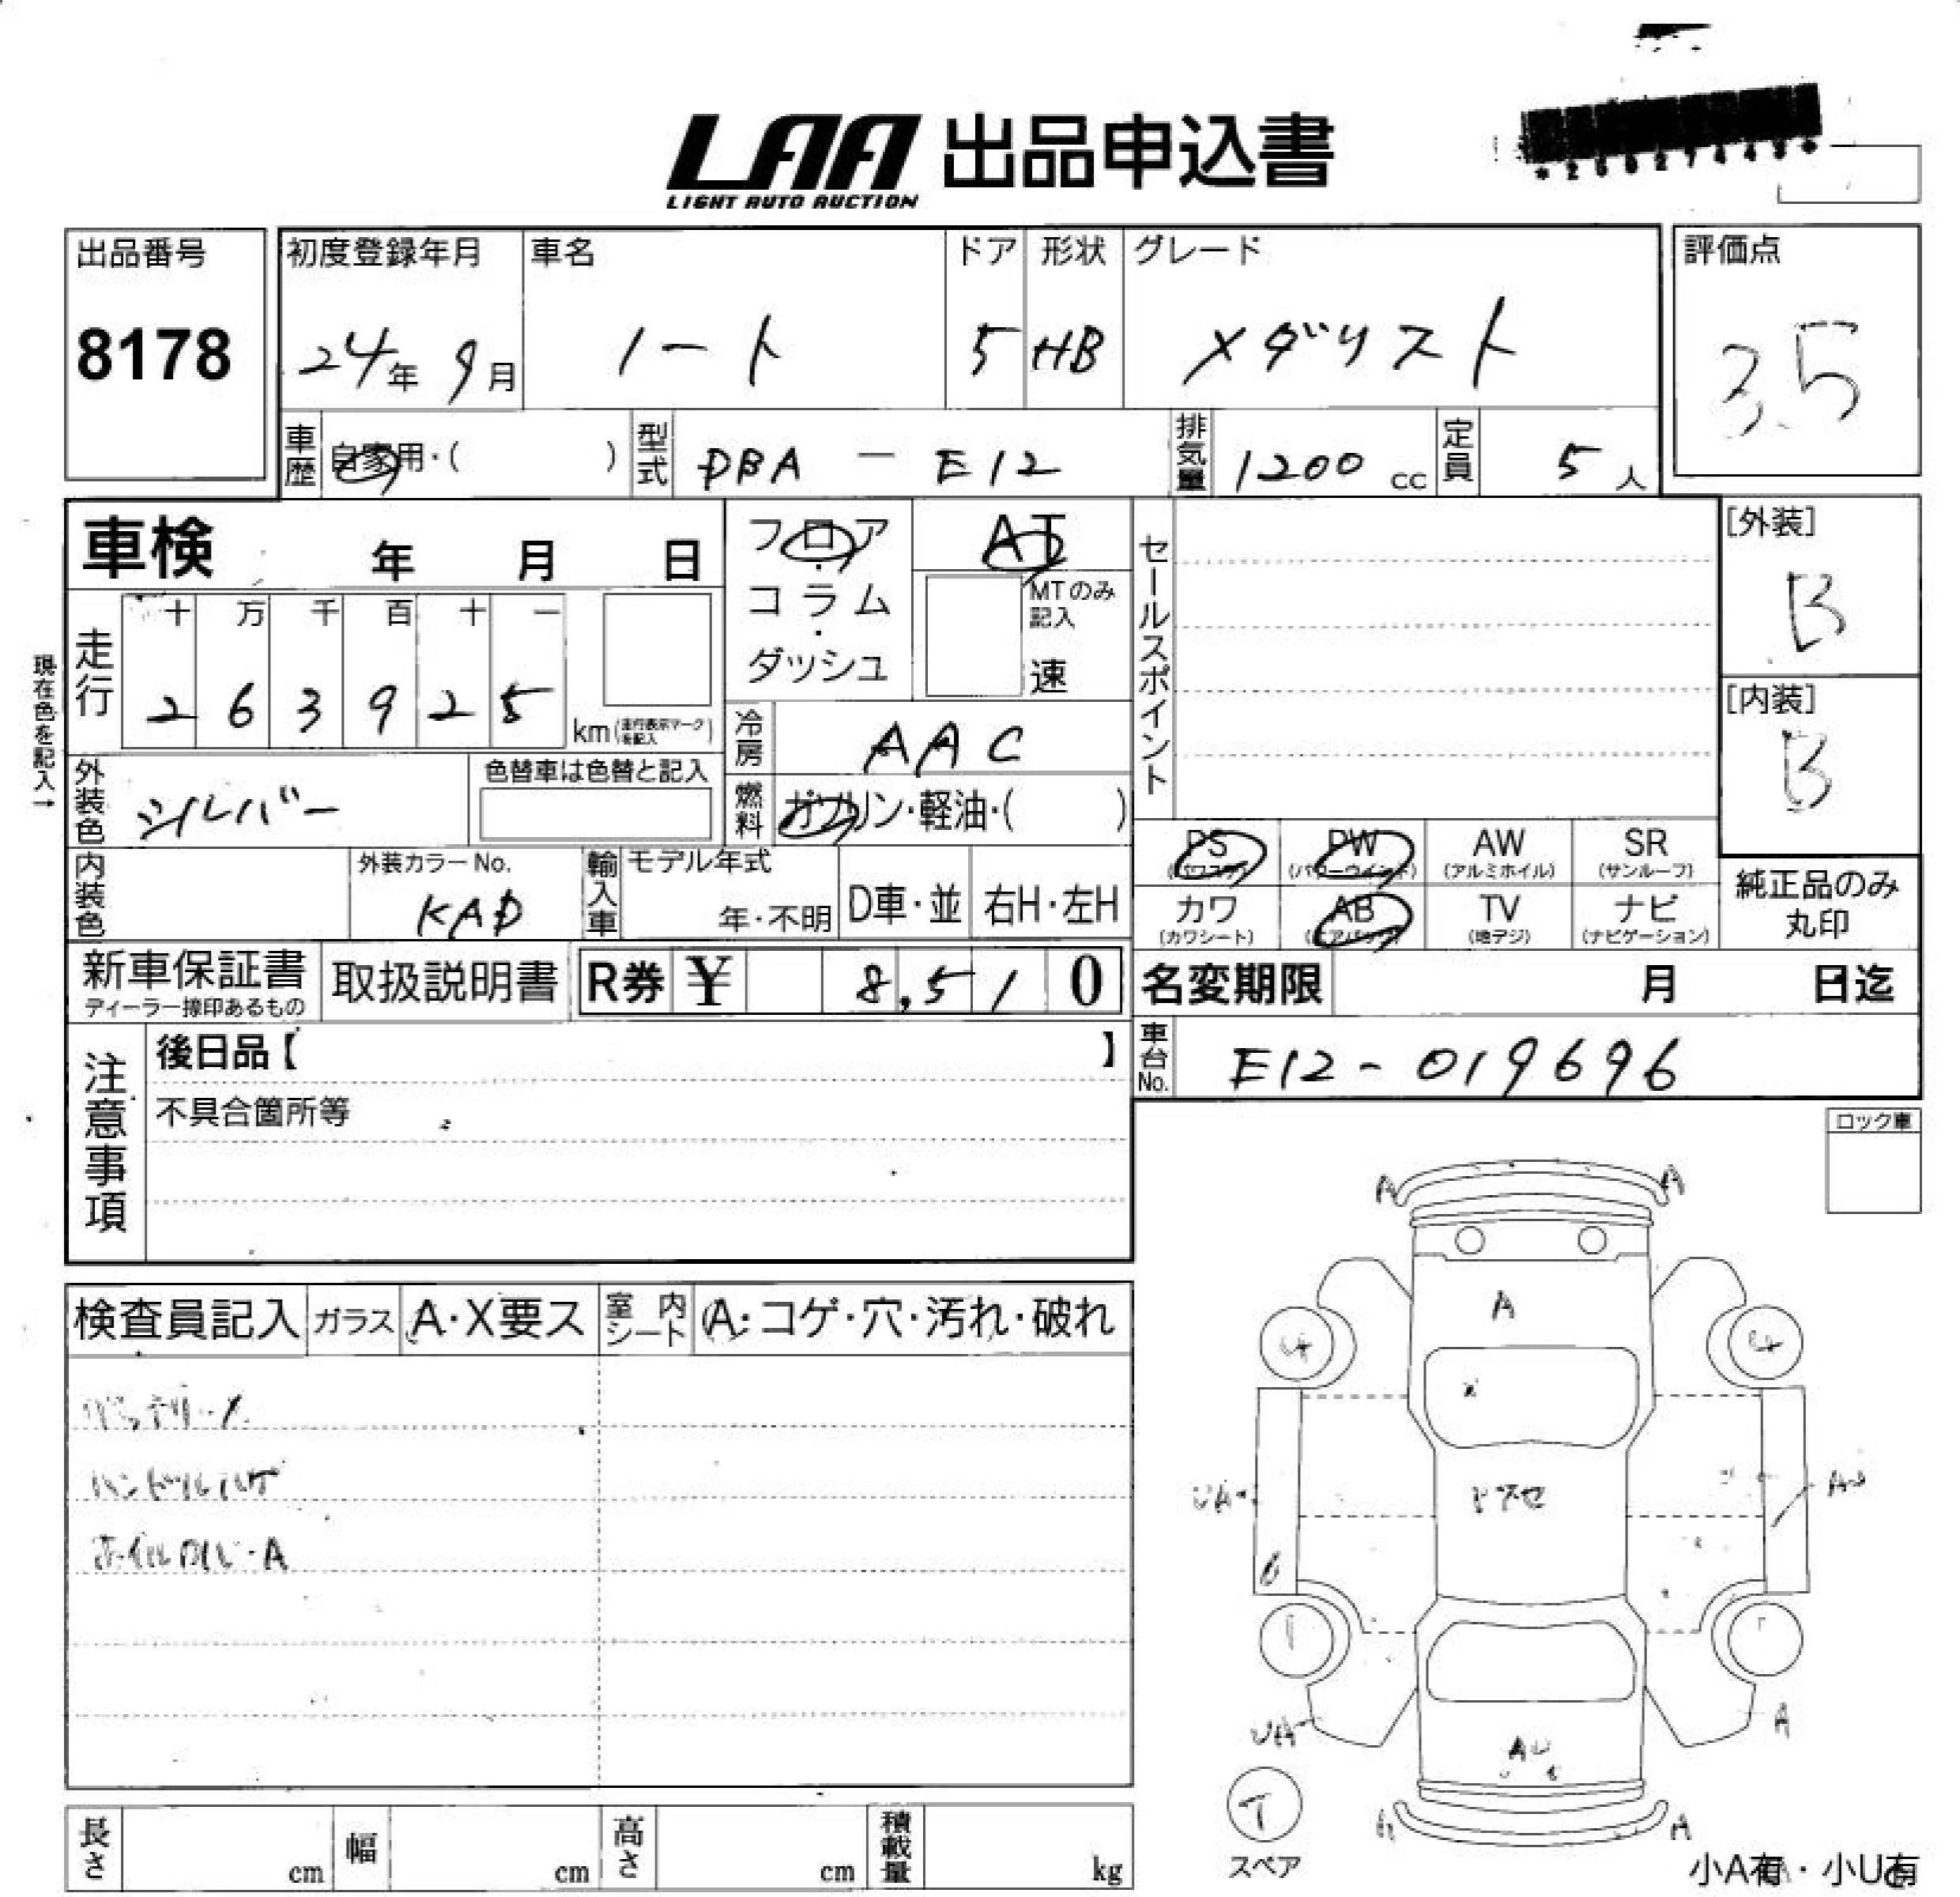 LAA 出品申込書
LIGHT AUTO AUCTION
出品番号
8178
初度登録年月
24年 9月
車名
ノート
ドア
5
形状
HB
グレード
メダリスト
評価点
3.5
車歴
自家用・( )
型式
DBA - E12
排気量
1200 cc
定員
5 人
車検 年 月 日
走行
十 万 千 百 十 一
2 6 3 9 2 5
km (走行表示マークを記入)
現在色を記入→
外装色
シルバー
色替車は色替と記入
内装色
外装カラーNo.
KAD
フロア・コラム・ダッシュ
AT
MTのみ記入
速
冷房
AAC
燃料
ガソリン・軽油・( )
輸入車
モデル年式
年・不明
D車・並
右H・左H
セールスポイント
[外装]
B
[内装]
B
PS (パワステ)
PW (パワーウインド)
AW (アルミホイル)
SR (サンルーフ)
カワ (カワシート)
AB (エアバック)
TV (地デジ)
ナビ (ナビゲーション)
純正品のみ丸印
新車保証書
ディーラー捺印あるもの
取扱説明書
R券 ¥ 8,510
名変期限 月 日迄
車台No.
E12-019696
注意事項
後日品【 】
不具合箇所等
ロック車
検査員記入
ガラス
A・X要ス
室内シート
A・コゲ・穴・汚れ・破れ
ハンドルハゲ
A
A
A
A
UA
A
A
A
T
スペア
小A有・小U有
長さ cm
幅 cm
高さ cm
積載量 kg